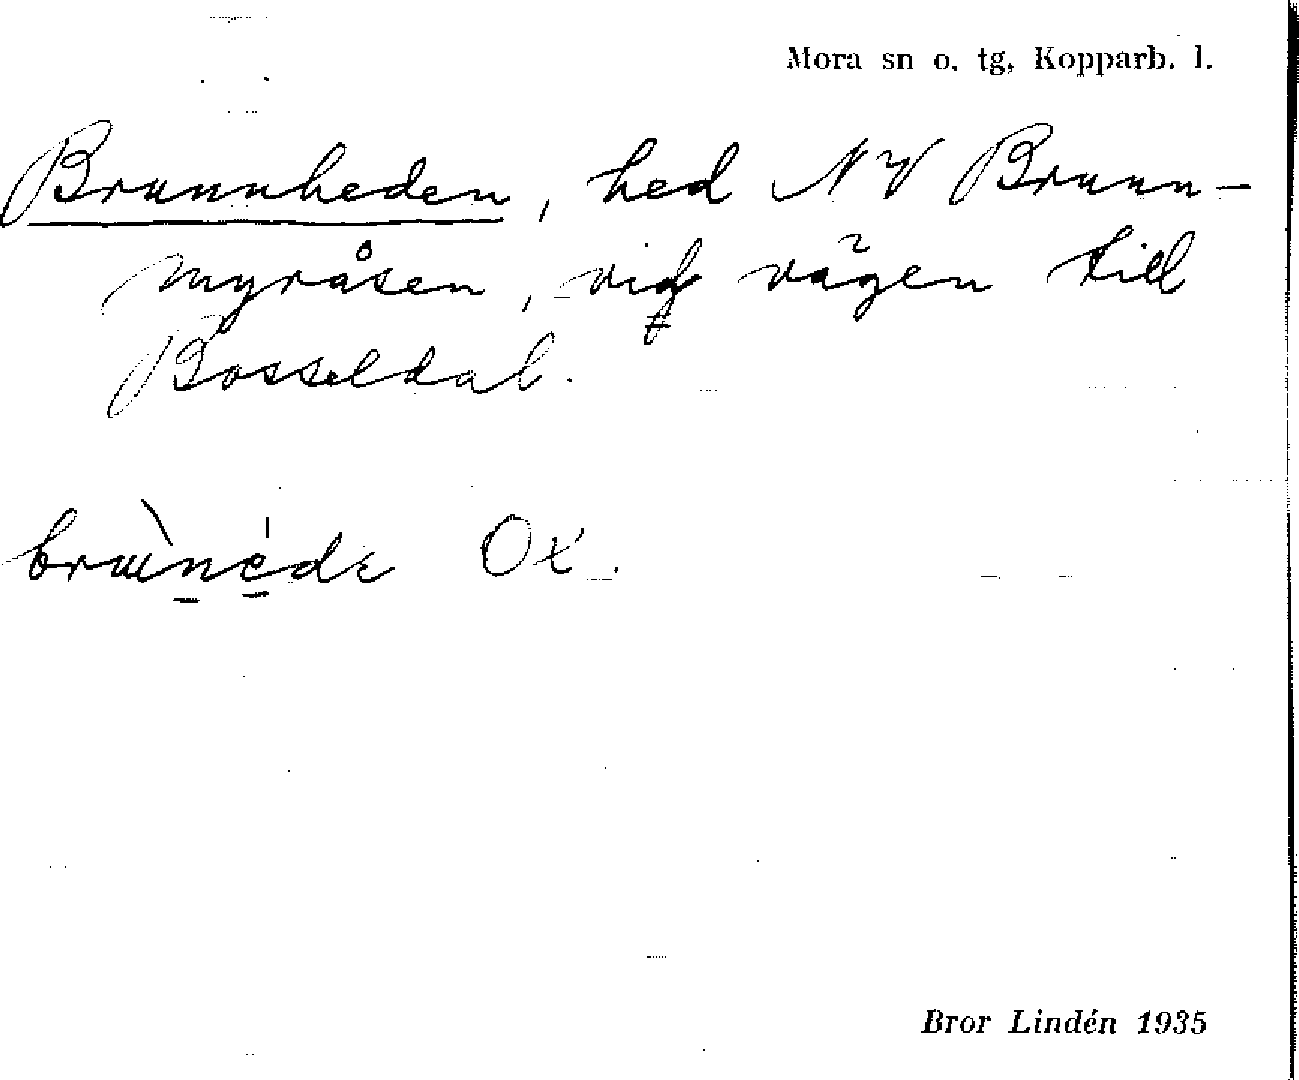 Mora sn o. tg, Kopparb. l.
Brunnheden, hed NV Brunn-
myråsen, vid vägen till
Bosseldal.
Ox.
Bror Lindén 1935